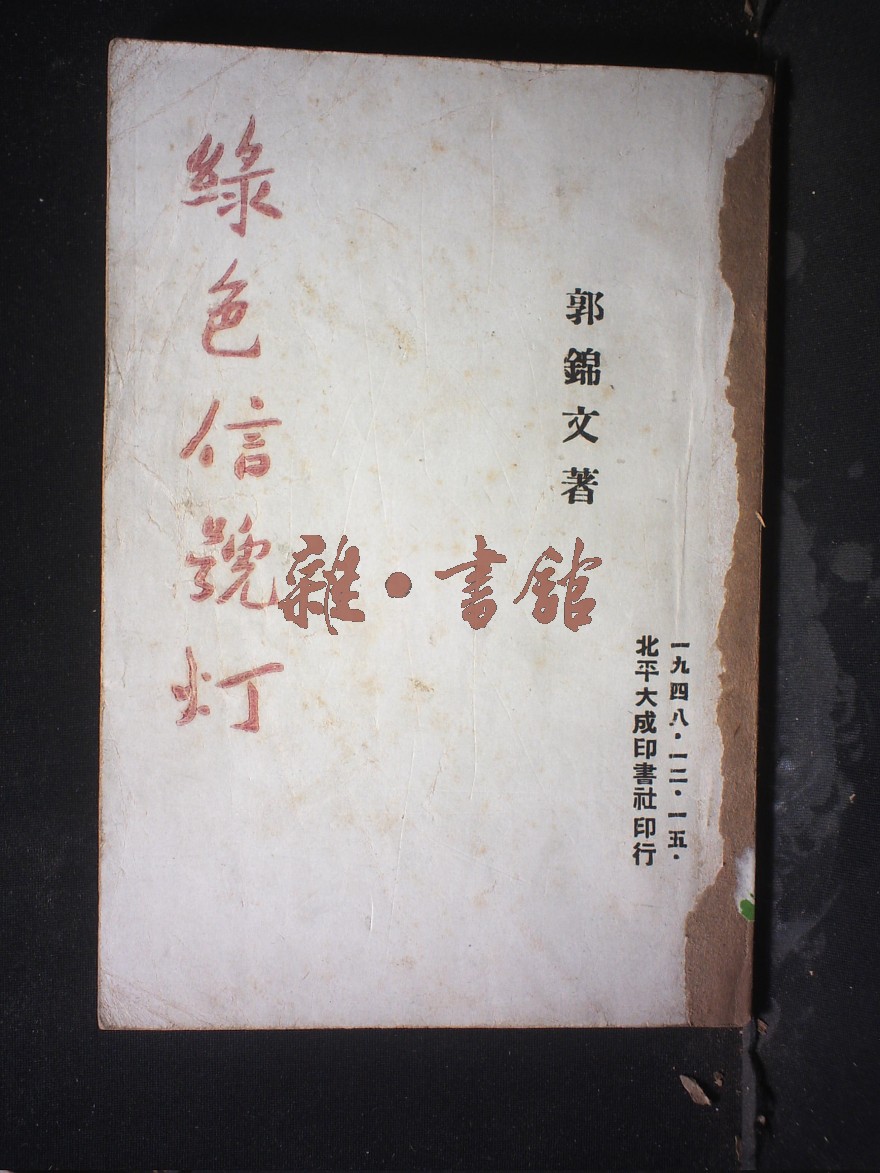 一九四八·一二·一五·
北平大成印書社印行
郭錦文著
綠色信號灯
雜·書館